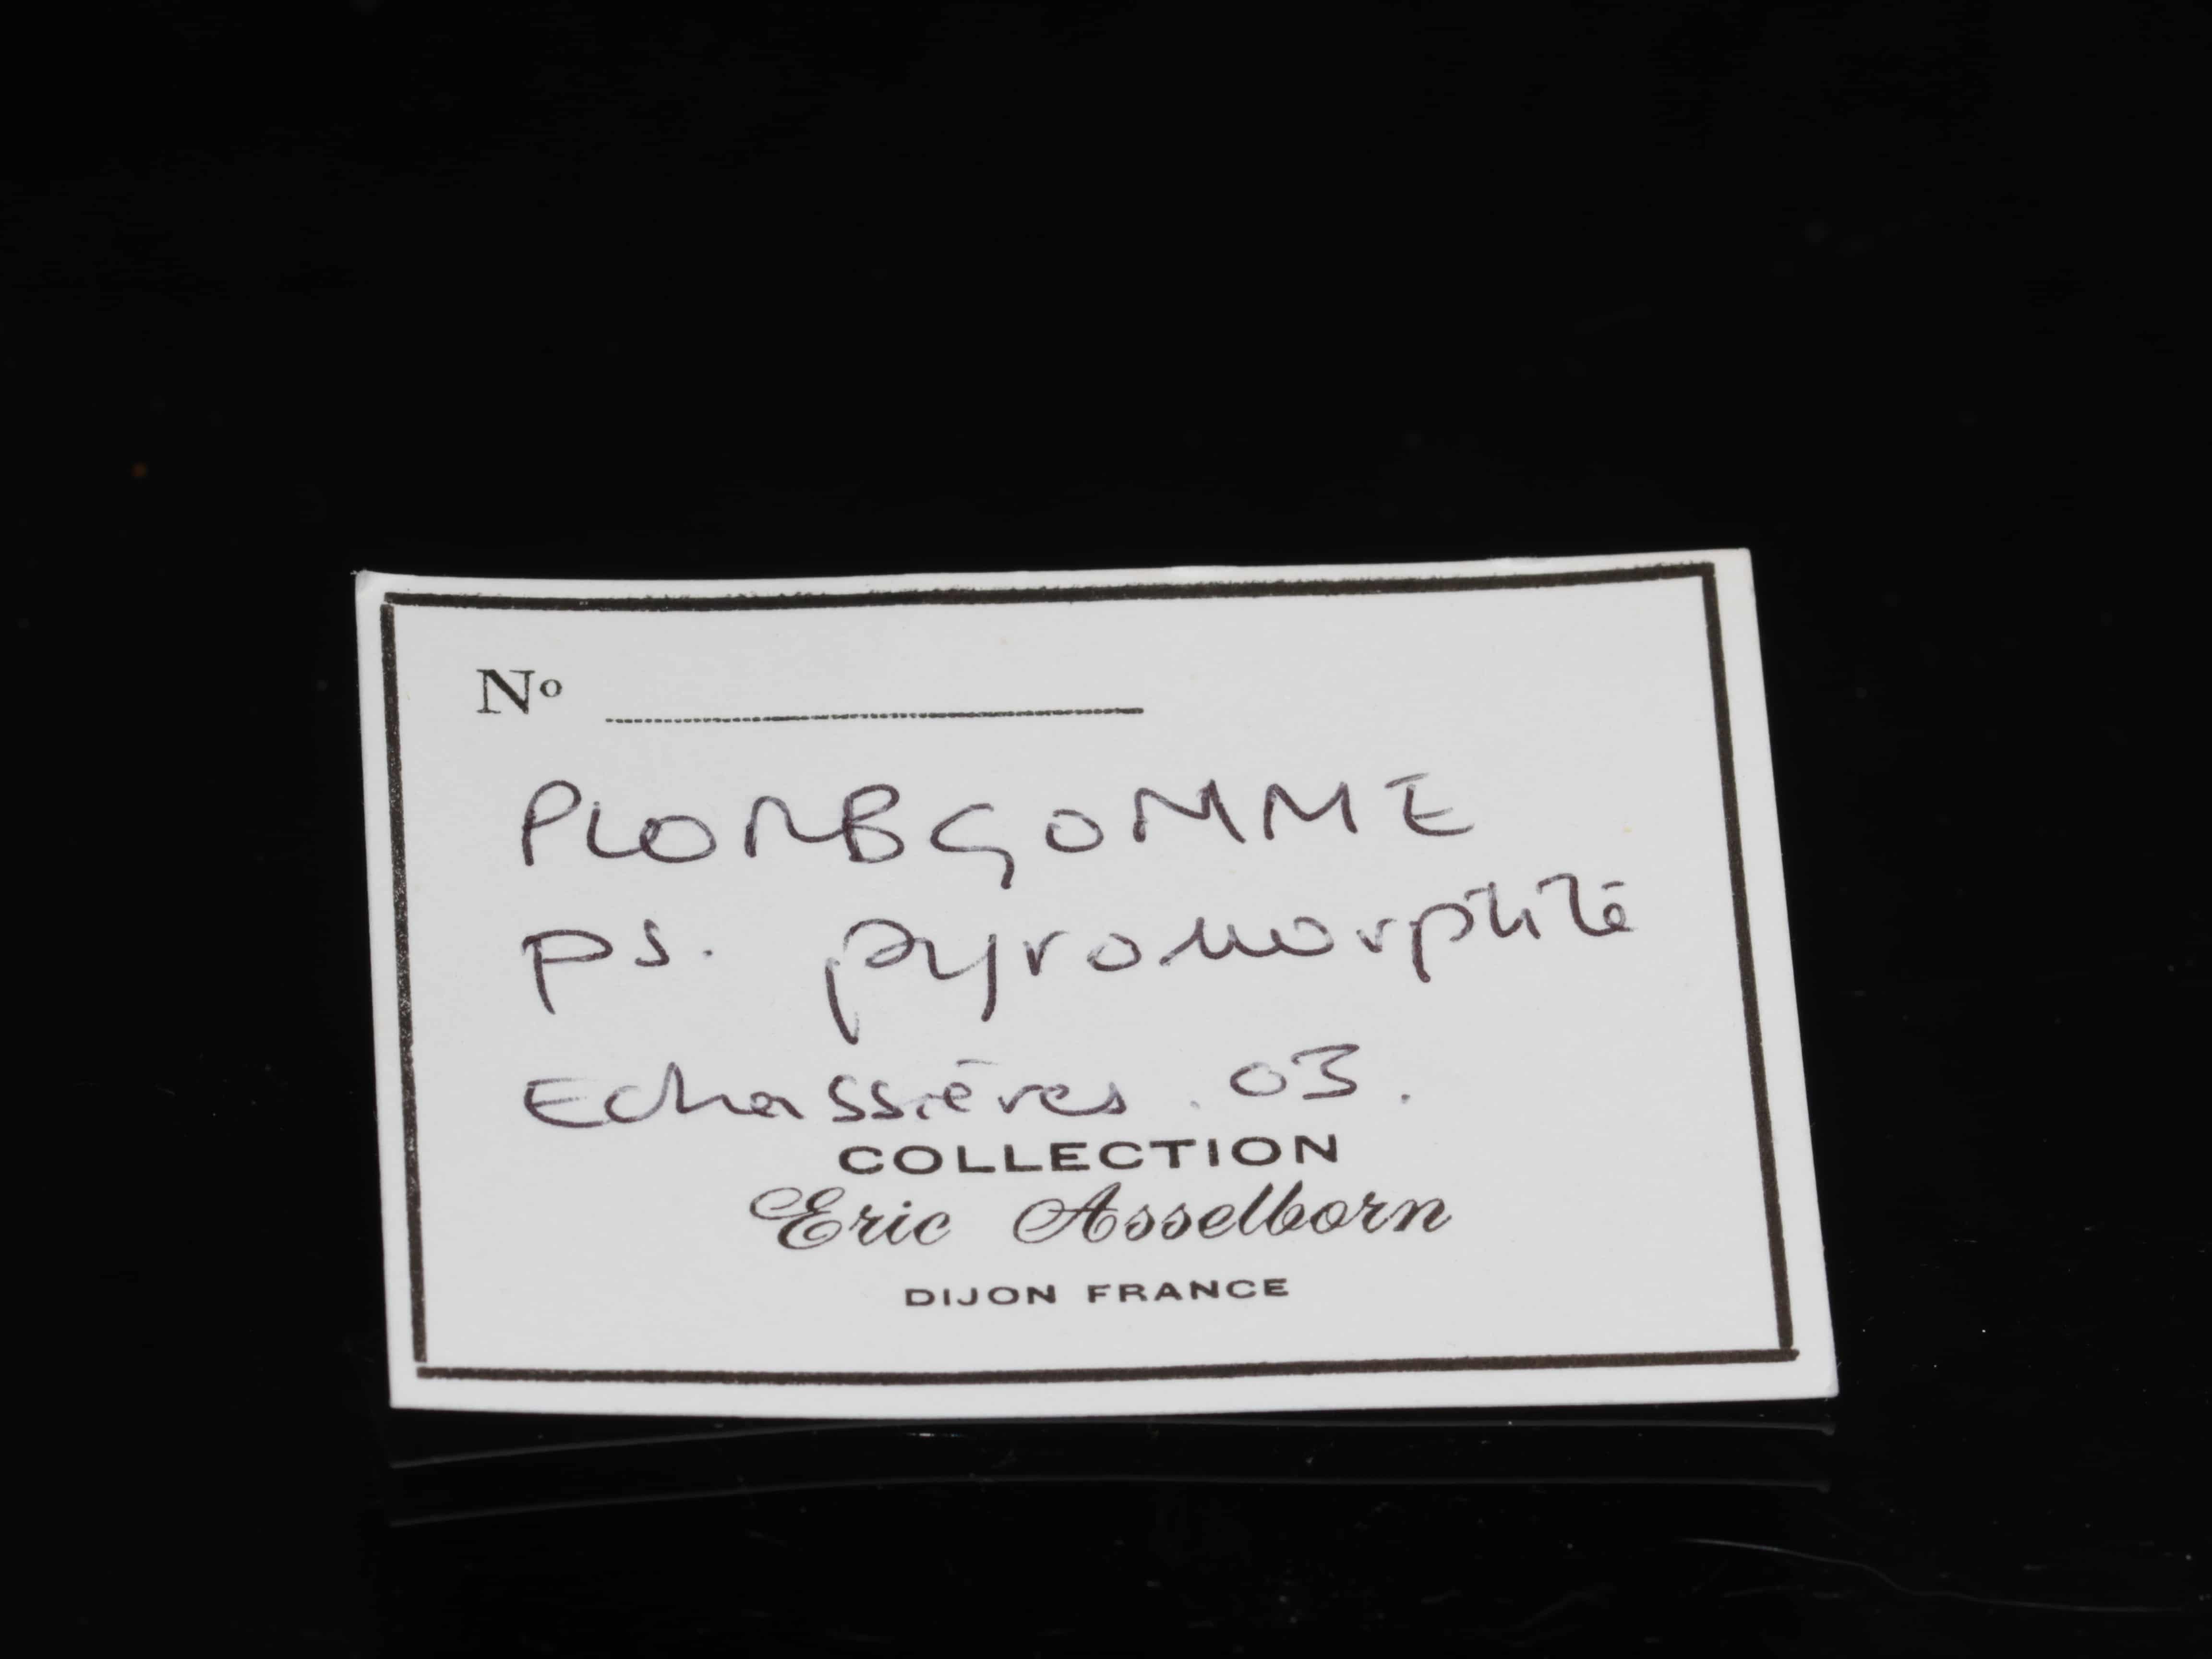 Nº
PLOMBGOMME
ps. pyromorphite
Echassières . 03 .
COLLECTION
Eric Asselborn
DIJON FRANCE